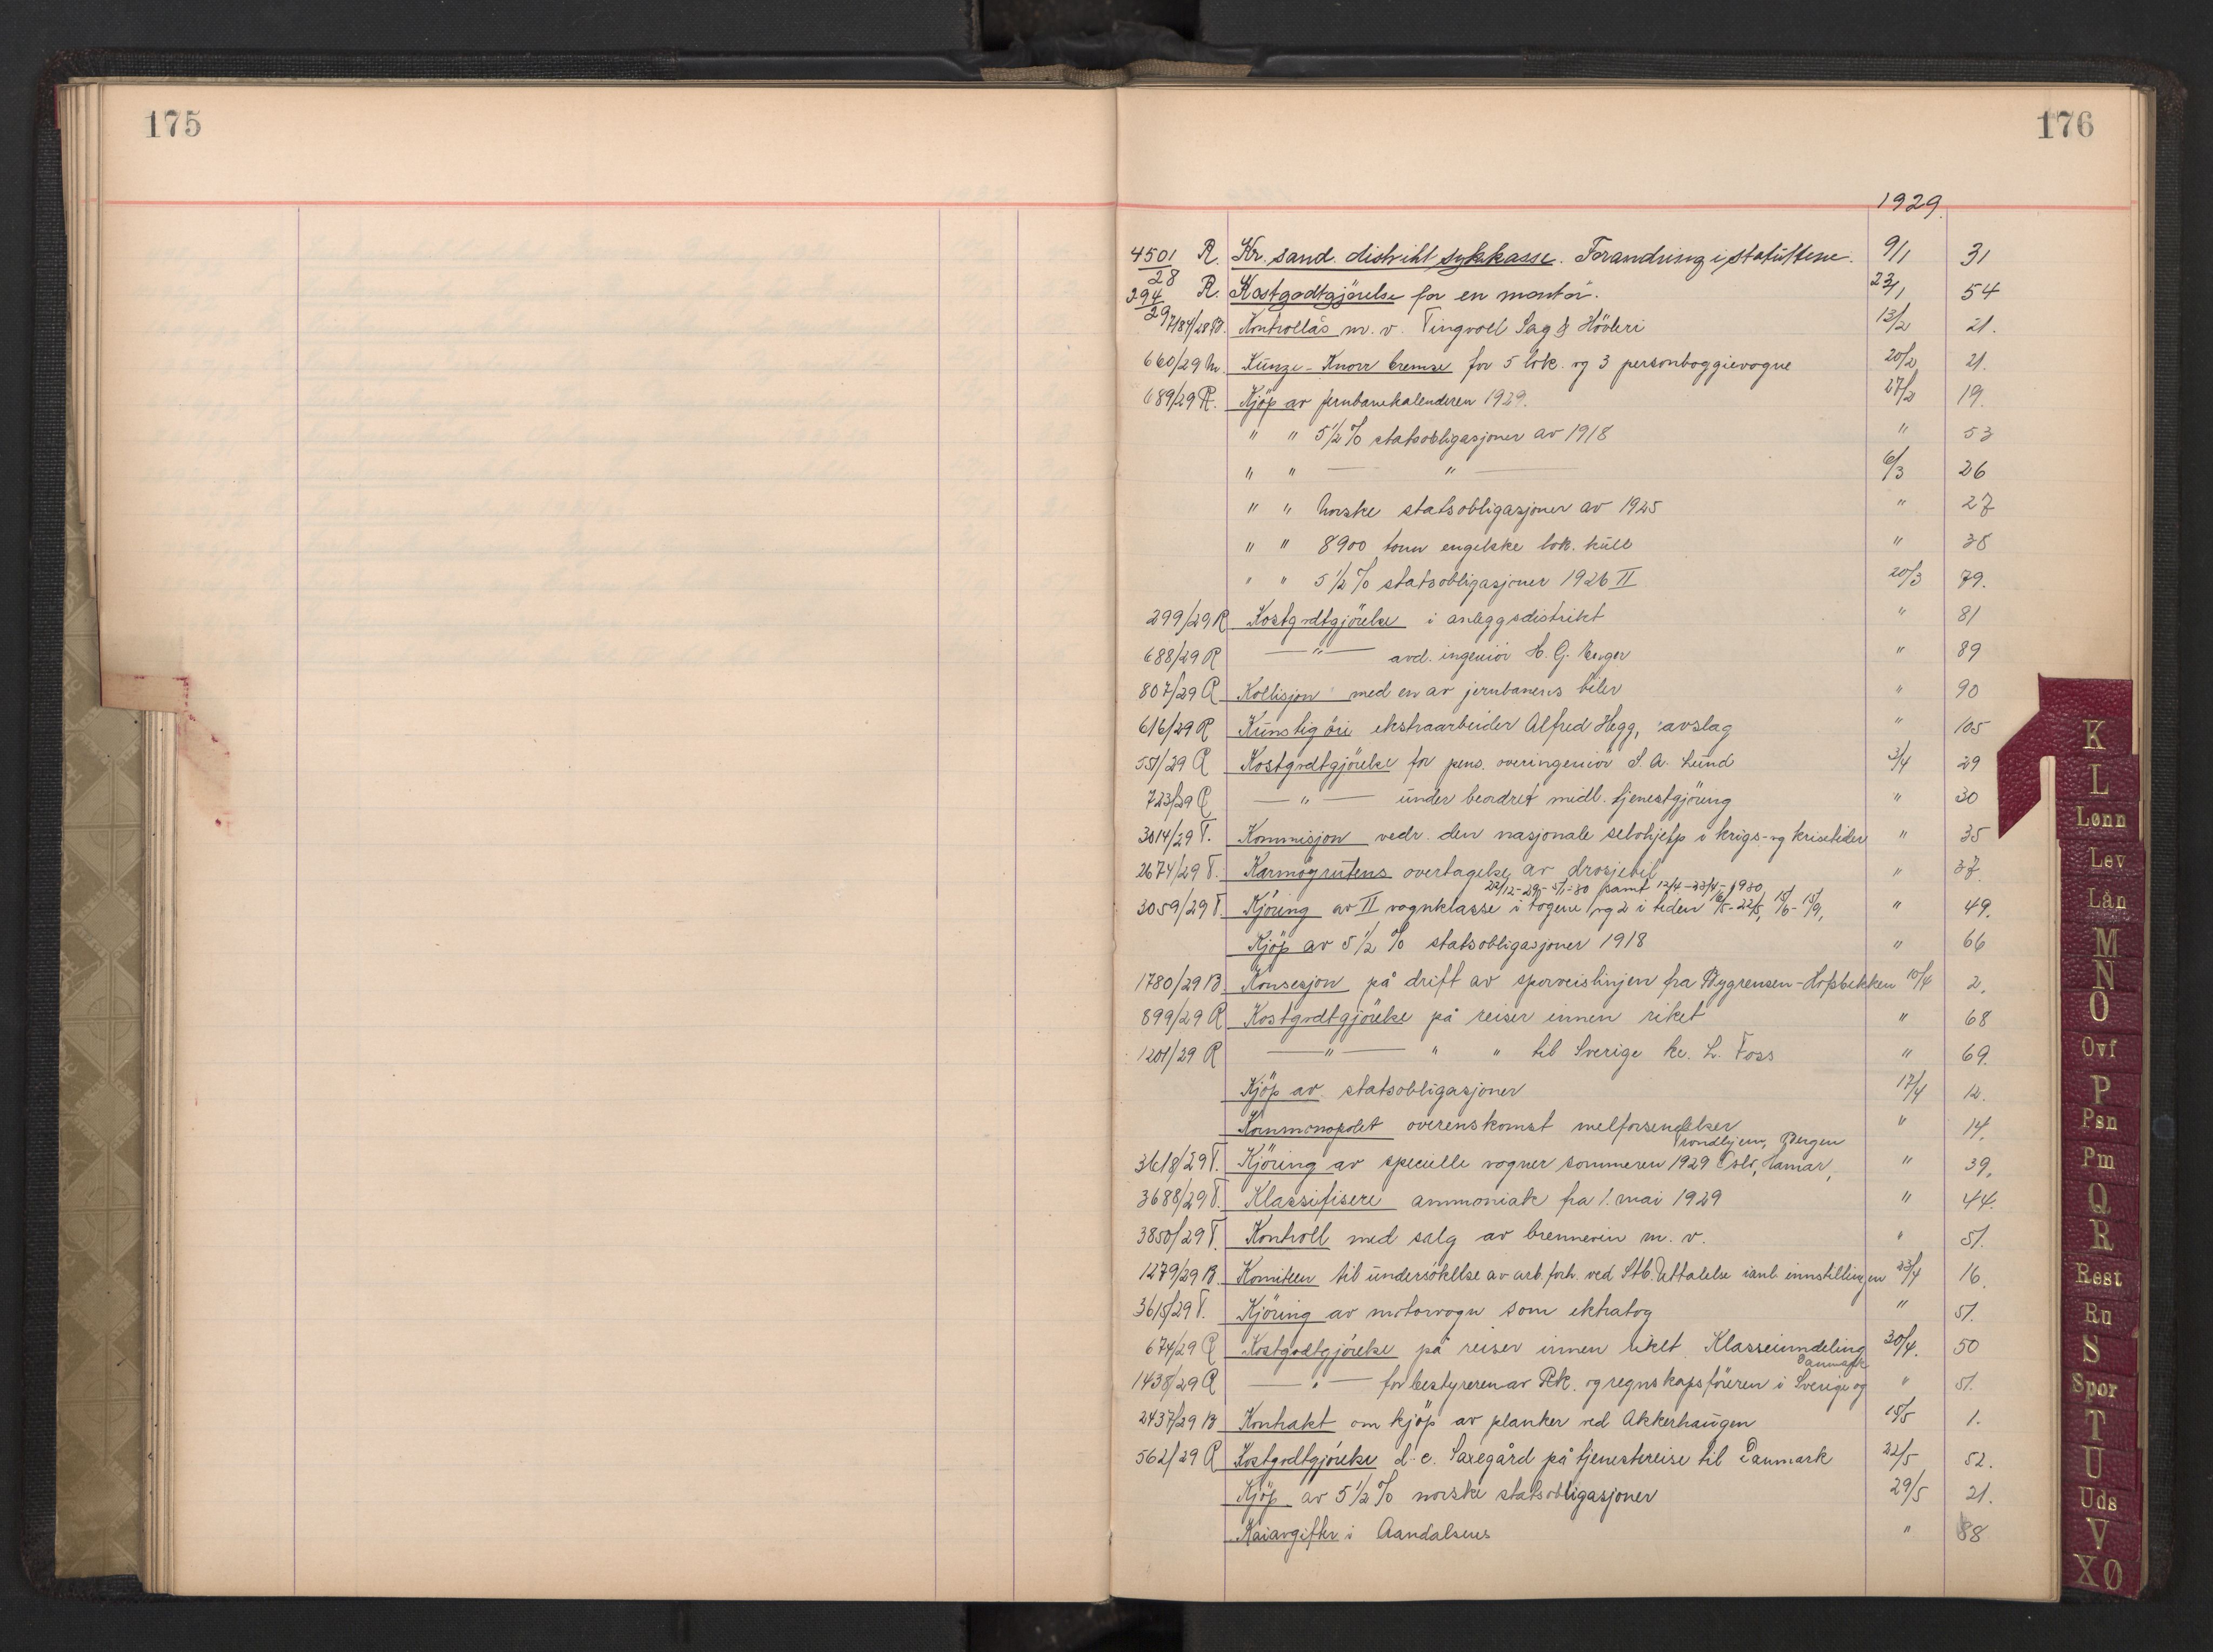 175
176
1929.
4501/28 R. Kr. sand. distrikt sykekasse. Forandring i statuttene. 9/1 31
294/29 R. Kostgodtgjörelse for en montör. 23/1 54
7184/28 B. Kontrollås m. v. Tingvoll Sag & Hövleri 13/2 21.
660/29 M. Kunze-Knorr bremse for 5 lok. og 3 personboggievogne 20/2 21.
689/29 R. Kjöp av jernbanekalenderen 1929. 27/2 19.
" " 5 1/2 % statsobligasjoner av 1918 " 53
" " — " — 6/3 26
" " Norske statsobligasjoner av 1925 " 27
" " 8900 tonn engelske lok. kull " 38
" " 5 1/2 % statsobligasjoner 1926 II 20/3 79.
299/29 R Kostgodtgjörelse i anleggsdistrikt " 81
688/29 R — " — avd. ingeniör H. G. " 89
807/29 R Kollisjon med en av jernbanens biler " 90
616/29 R Kunstig öie ekstraarbeider Alfred Hegg, avslag " 105
551/29 R Kostgodtgjörelse for pens. overingeniör S. A. Lund 3/4 29
723/29 R — " — under beordret midl. tjenestgjöring " 30
3014/29 T. Kommisjon vedr. den nasjonale selvhjelp i krigs- og krisetider " 35
2674/29 T. Karmöyrutens overtagelse av drosjebil " 37.
22/12-29 - 5/1-30 samt 12/4-23/4-1930,
3059/29 T. Kjöring av II vognklasse i togene og 2 i tiden 16/5-22/5, 15/6-15/9, " 49.
Kjöp av 5 1/2 % statsobligasjoner 1918 " 66
1780/29 B. Konsesjon på drift av sporveislinjen fra Bygrensen-Hofsbekken 10/4 2.
899/29 R Kostgodtgjörelse på reiser innen riket " 68
1201/29 R — " — " " til Sverige hr. L. Foss " 69.
Kjöp av statsobligasjoner 17/4 12.
Kornmonopolet overenskomst melforsendelser " 14.
Trondhjem, Bergen
3618/29 T. Kjöring av specielle vogner sommeren 1929 Oslo, Hamar, " 39.
3688/29 T. Klassifisere ammoniak fra 1. mai 1929 " 44.
3850/29 T. Kontroll med salg av brennevin m. v. " 51.
1279/29 B. Komiteen til undersökelse av arb. forh. ved Stb. Uttalelse ianl. innstillingen 23/4 16.
3615/29 T. Kjöring av motorvogn som ektratog " 51.
674/29 R Kostgodtgjörelse på reiser innen riket. Klasseinndeling 30/4. 50
Danmark
1438/29 R — " — for bestyreren av Rk. og regnskapsföreren i Sverige og " 51.
2437/29 B Kontrakt om kjöp av planker ved Akkerhaugen 15/5 1.
562/29 R Kostgodtgjörelse d. e. Saxegård på tjenestereise til Danmark 22/5 52.
Kjöp av 5 1/2 % norske statsobligasjoner 29/5 21.
Kaiavgifter i Aandalsnes " 88
K
L
Lønn
Lev
Lån
M
N
O
Ovf
P
Psn
Pm
Q
R
Rest
Ru
S
Spor
T
U
Uds
V
XØ